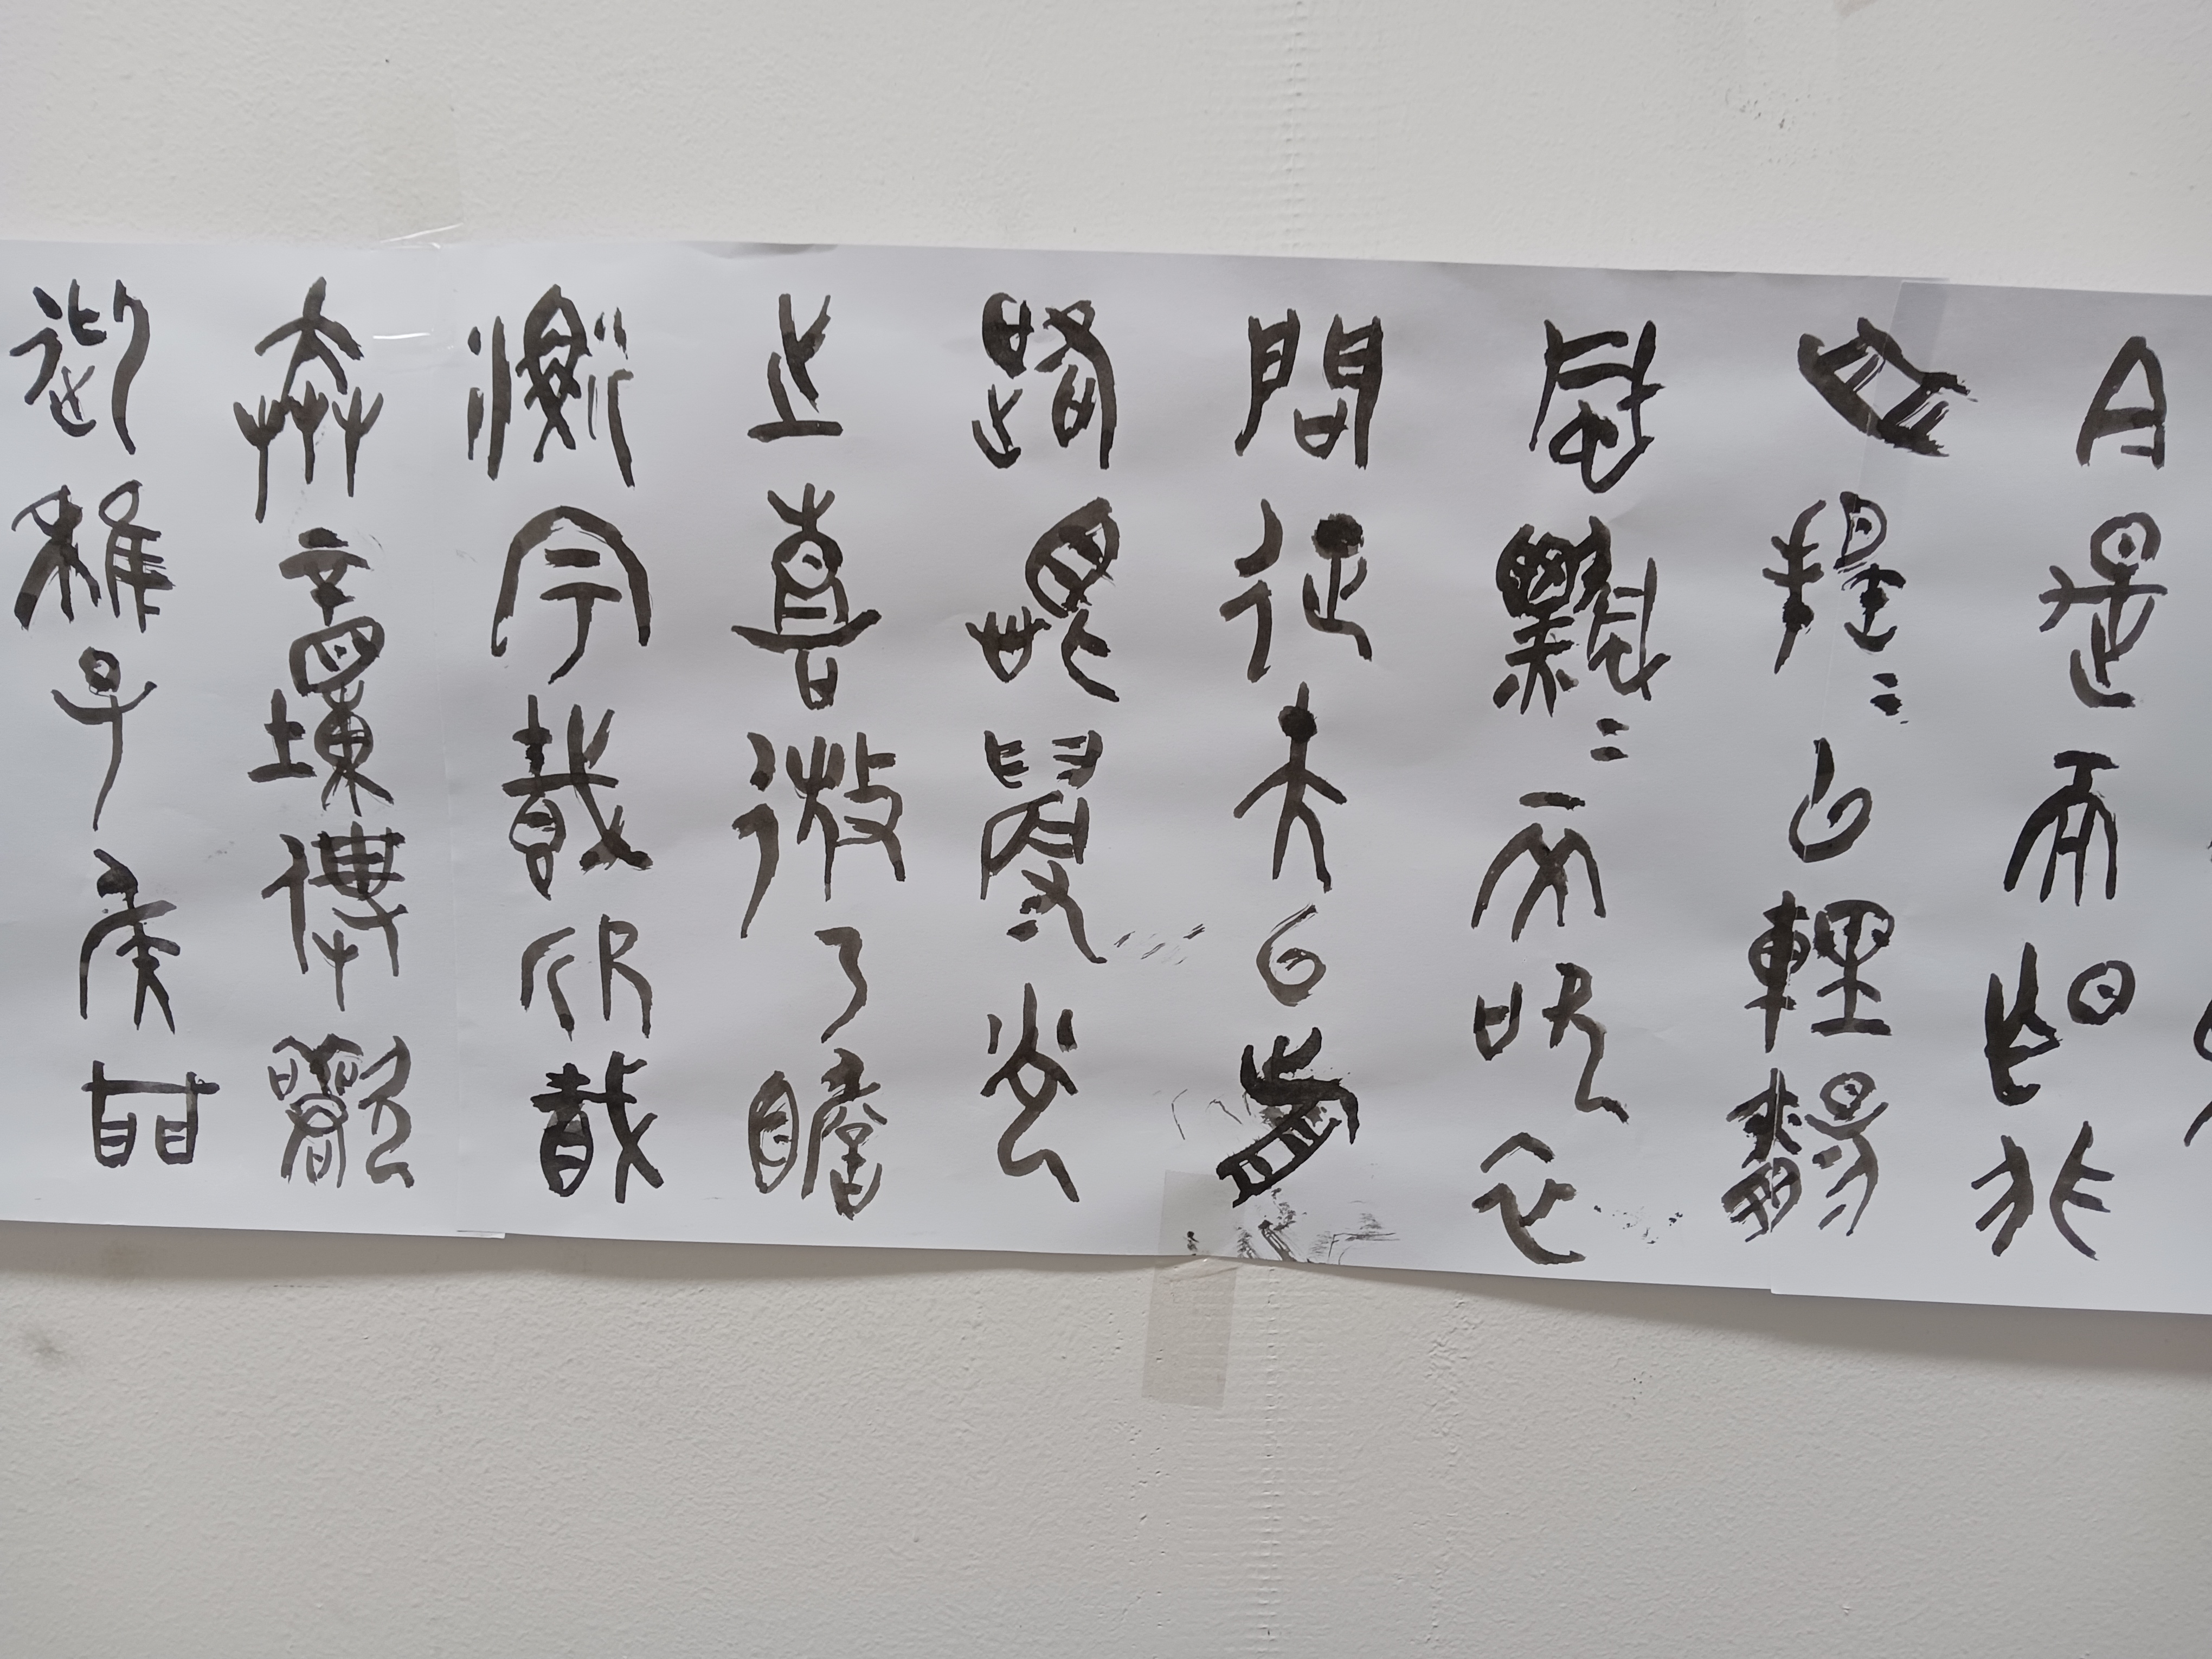 今是而昨非
舟遙〻以輕颺
風飄〻而吹衣
問征夫以前
路恨晨光
之熹微乃瞻
衡宇載欣載
奔僮僕歡
迎稚子候門